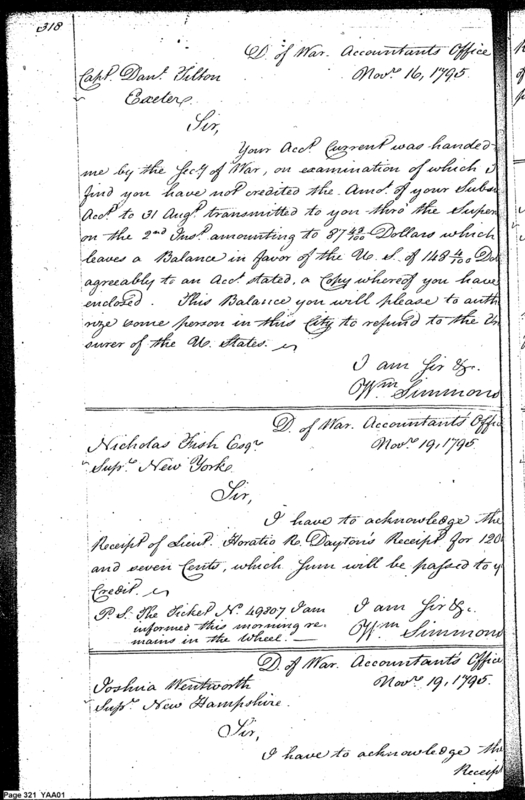 318
D. of War. Accountants Office
Novr. 16, 1795
Capt. Danl. Tilton
Exeter
Sir,
Your Acct. Current was handed
me by the Secy of War, on examination of which I
find you have not credited the Amot. of your Subs
Acct. to 31 Augt. transmitted to you thro the Super
on the 2nd Inst. amounting to 87 43/100 Dollars which
leaves a Balance in favor of the U. S. of 148 4/100 Dol
agreeably to an Acct. stated, a Copy whereof you have
enclosed. This Balance you will please to autho
rize some person in this City to refund to the
surer of the U. States.
I am Sir &c.
Wm Simmons
D. of War. Accountants Offi
Novr. 19, 1795
Nicholas Fish Esqr
Supr. New York
Sir,
I have to acknowledge the
Receipt of Lieut. Horatio R. Dayton's Receipt for 120
and seven Cents, which Sum will be passed to y
Credit.
I am Sir &c.
Wm Simmons
P.S. The Ticket No. 49807 I am
informed this morning re
mains in the Wheel.
D. of War. Accountant's Office
Novr. 19, 1795
Joshua Wentworth
Supr. New Hampshire
Sir,
I have to acknowledge the
Receipt
Page 321 YAA01